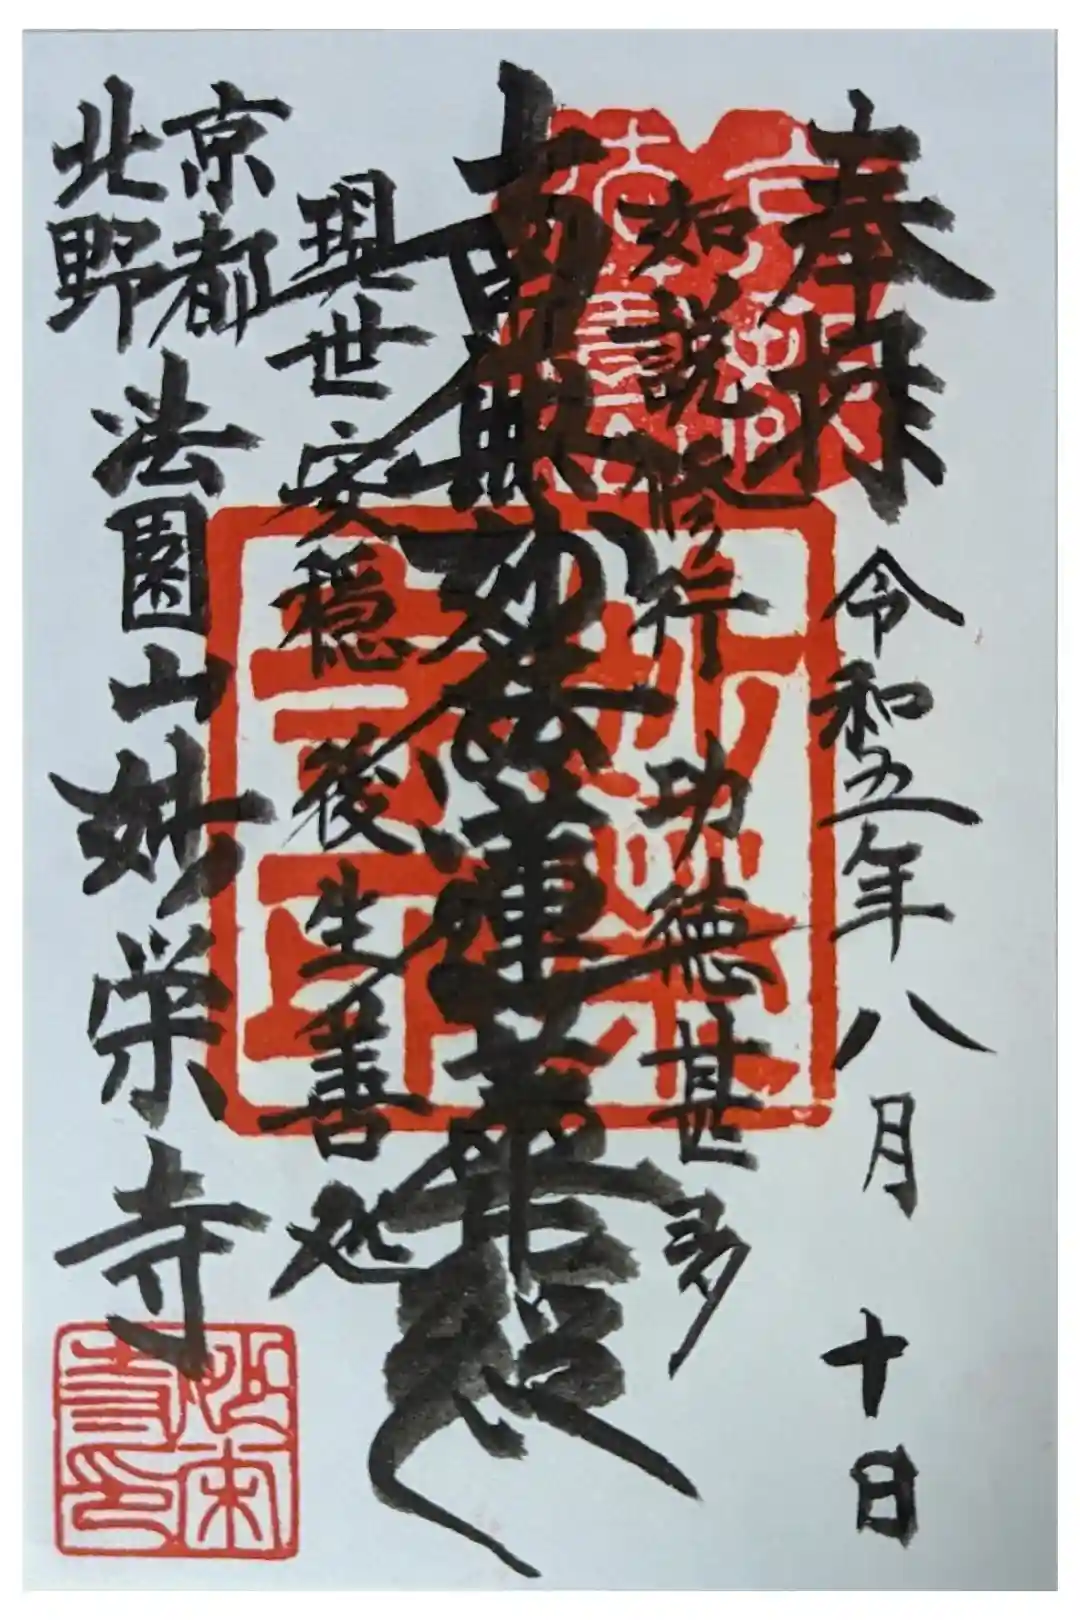 奉拝
令和五年八月十日
如説修行 功徳甚多
南無妙法蓮華経
現世安穏 後生善処
京都
北野
法園山妙栄寺